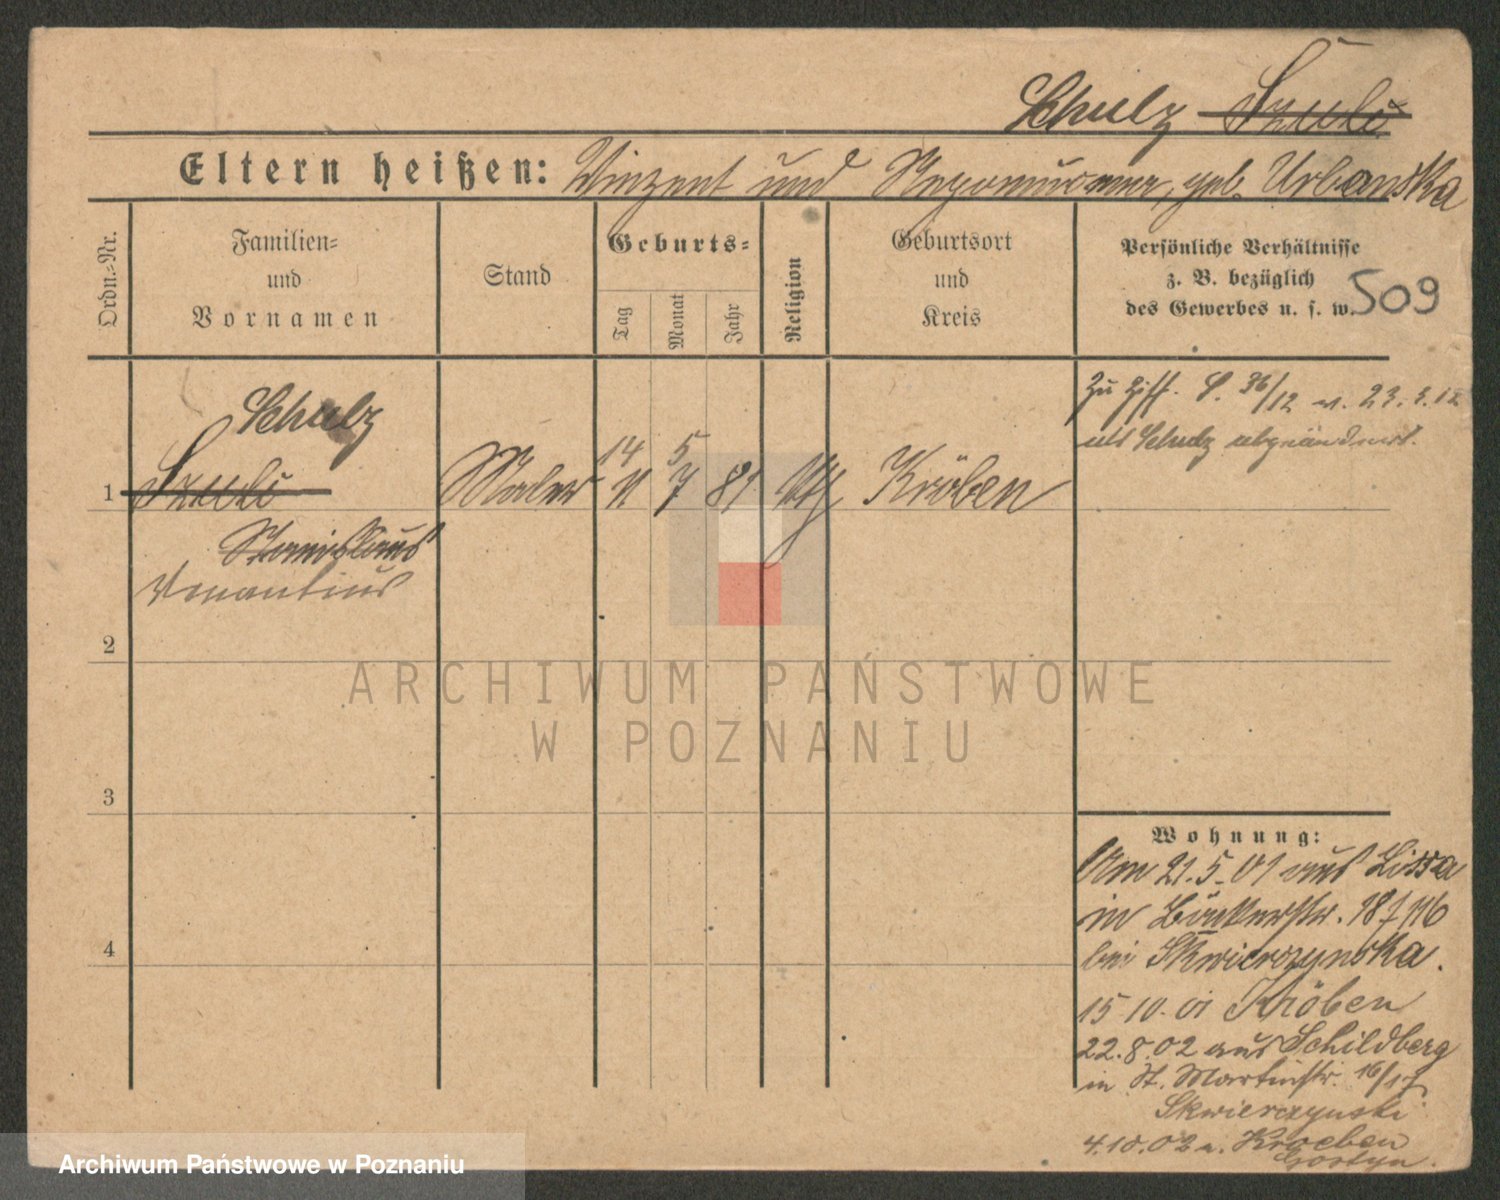 Schulz Szulc
Eltern heißen: Vinzent und Nepomucena, geb. Urbanska
Ordn.-Nr.
Familien-
und
Vornamen
Stand
Geburts-
Tag
Monat
Jahr
Religion
Geburtsort
und
Kreis
Persönliche Verhältnisse
z. B. bezüglich
des Gewerbes u. s. w.
509
Schulz
1 Szulc Maler 11 7 81 Kröben
14 5
Stanislaus
Venantius
Zu Ziff. 36/12 v. 23.3.12
als Schulz abgeändert.
2
3
4
Wohnung:
Am 21.5.01 aus Lissa
in Bäckerstr. 18
bei Skwierczynska.
15 10. 01 Kröben
22.8.02 aus Schildberg
in St. Martinstr. 16/17
Skwierczynski
4.10.02 n. Kroeben
Gostyn.
ARCHIWUM PAŃSTWOWE
W POZNANIU
Archiwum Państwowe w Poznaniu